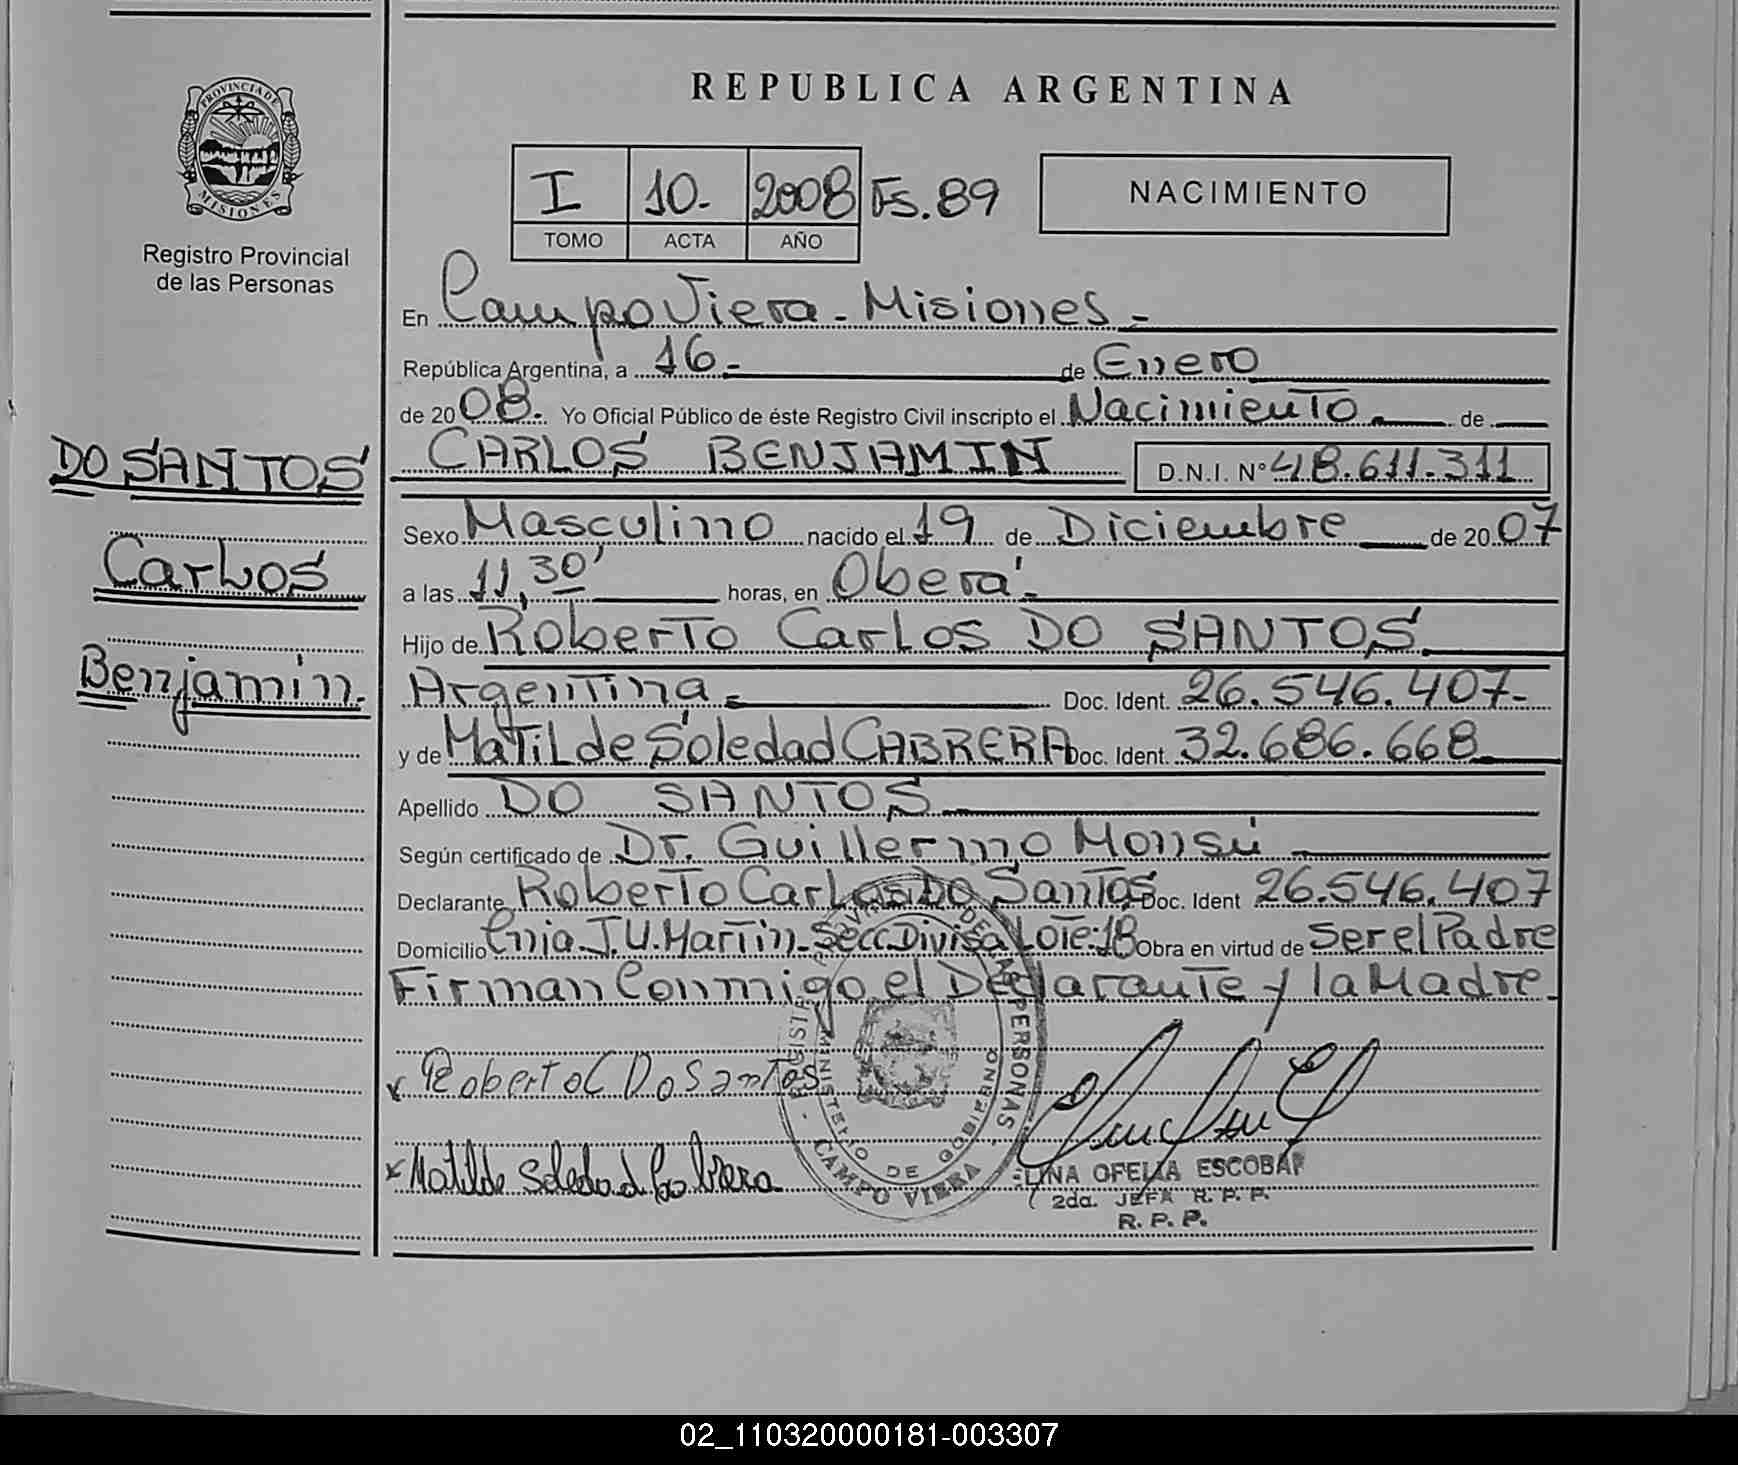 REPUBLICA ARGENTINA
PROVINCIA DE
MISIONES
Registro Provincial
de las Personas
I 10.- 2008 Fs. 89
TOMO ACTA AÑO
NACIMIENTO
DO SANTOS
Carlos
Benjamin.
En Campo Viera - Misiones -
República Argentina, a 16 - de Enero
de 20 08. Yo Oficial Público de éste Registro Civil inscripto el Nacimiento de
CARLOS BENJAMIN D.N.I. N° 48.611.311
Sexo Masculino nacido el 19 de Diciembre de 20 07
a las 11,30' horas, en Oberá.-
Hijo de Roberto Carlos DO SANTOS.
Argentina - Doc. Ident. 26.546.407-
y de Matilde Soledad CABRERA Doc. Ident. 32.686.668
Apellido DO SANTOS
Según certificado de Dr. Guillermo Monsú
Declarante Roberto Carlos Do Santos Doc. Ident 26.546.407
Domicilio Cnia. J.U. Martin - Secc. Divisa Lote: 18 Obra en virtud de Ser el Padre
Firman Conmigo el Declarante y la Madre.
x Roberto C Do Santos
x Matilde Soledad Cabrera
MINISTERIO DE GOBIERNO
CAMPO VIERA
LINA OFELIA ESCOBAR
2da. JEFA R. P. P.
R. P. P.
02_110320000181-003307